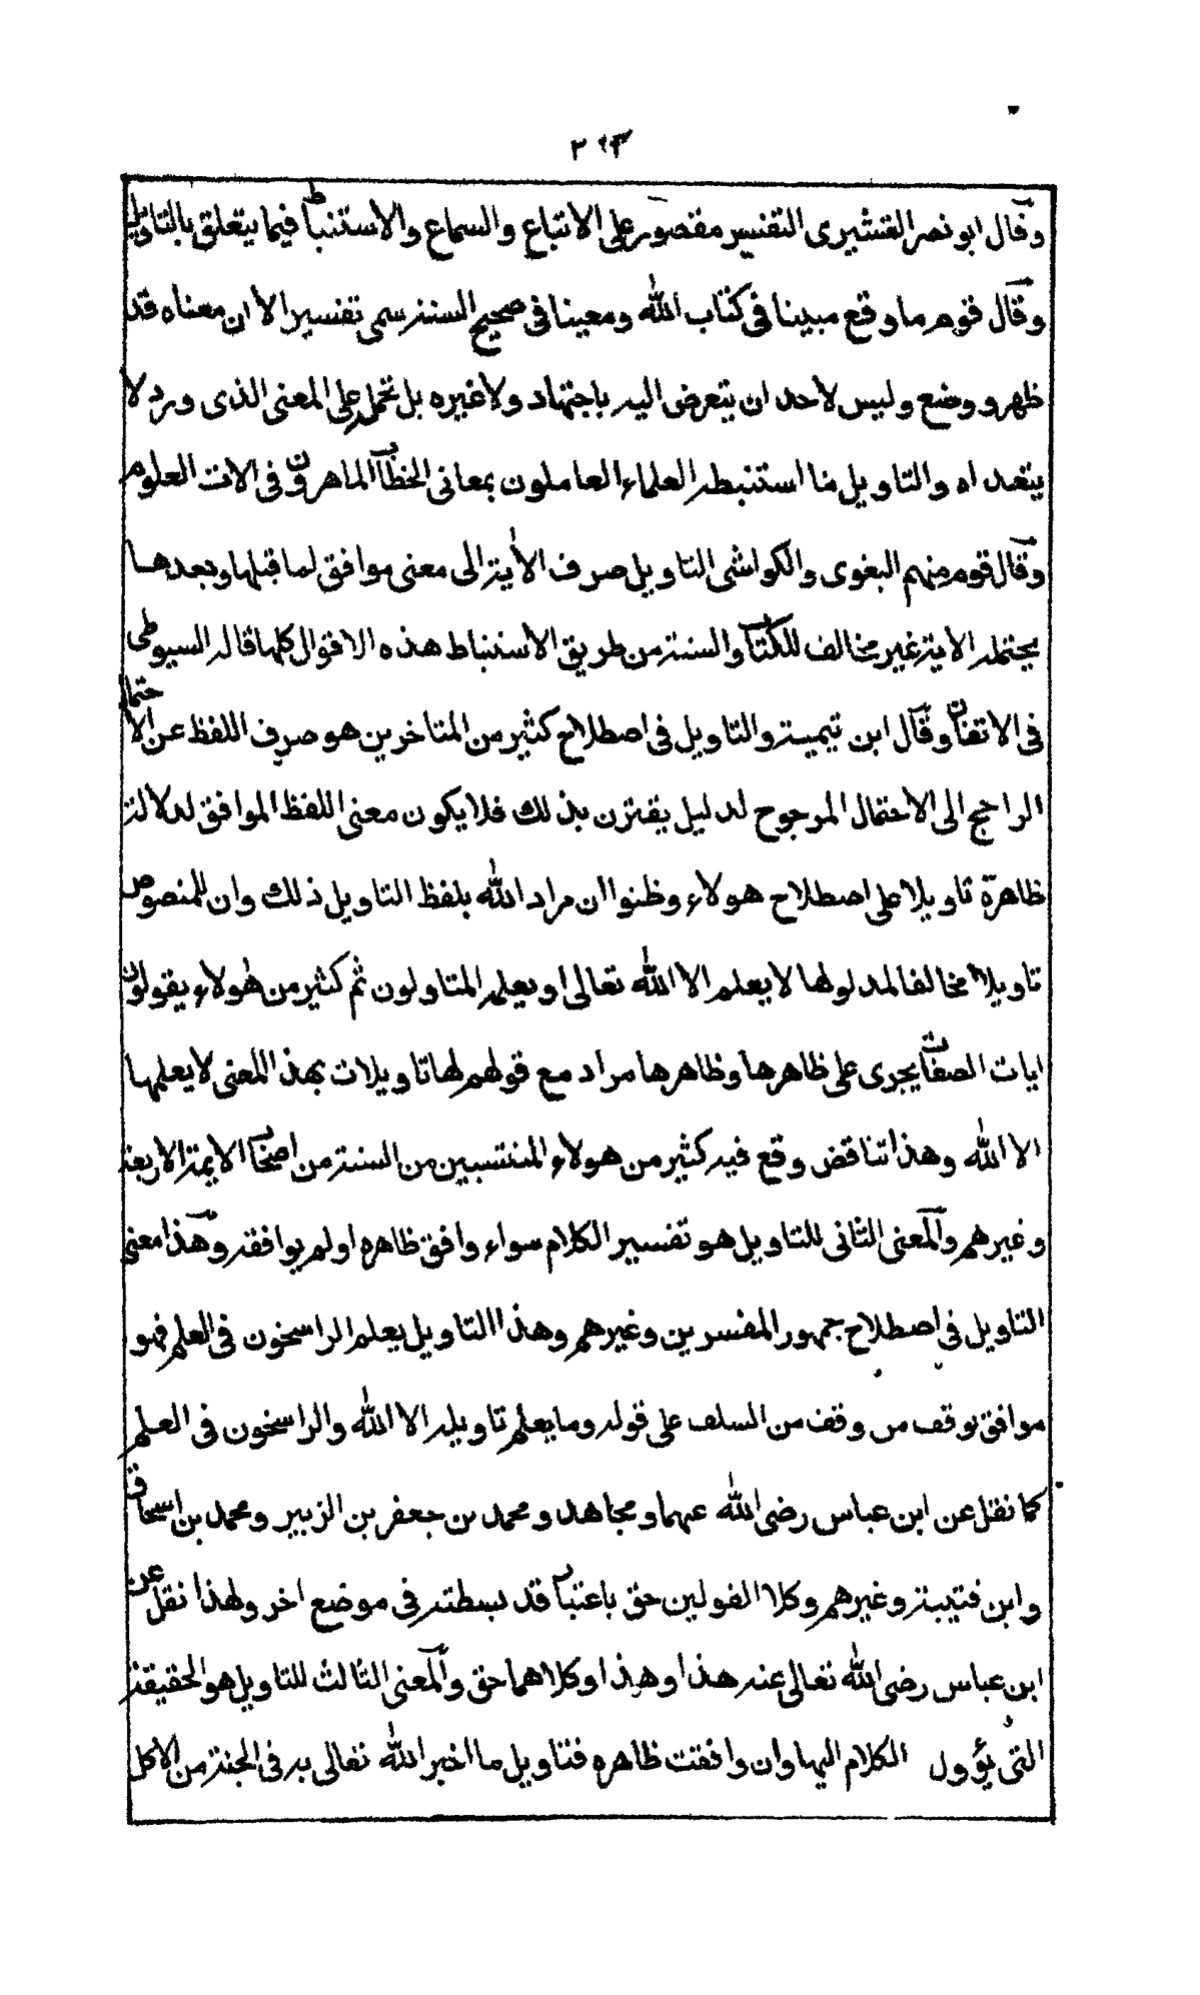 ٢٩٣
وقال ابو نصر القشيرى التفسير مقصور على الاتباع والسماع والاستنباط فيما يتعلق بالتاويل
وقال قوم ما وقع مبينا فى كتاب الله ومعينا فى صحيح السنة سمى تفسيرا لان معناه قد
ظهر ووضع وليس لاحد ان يتعرض اليه باجتهاد ولا غيره بل تحمله على المعنى الذى ورد لا
يتعداه والتاويل ما استنبطه العلماء العاملون بمعانى الخطاب الماهرون فى الات العلوم
وقال قوم منهم البغوى والكواشى التاويل صرف الاية الى معنى موافق لما قبلها وبعدها
يحتمله الاية غير مخالف للكتاب والسنة من طريق الاستنباط هذه الاقوال كلها قاله السيوطى
فى الاتقان وقال ابن تيمية والتاويل فى اصطلاح كثير من المتاخرين هو صرف اللفظ عن الاحتمال
الراجح الى الاحتمال المرجوح لدليل يقترن بذلك فلا يكون معنى اللفظ الموافق لدلالة
ظاهرة تاويلا على اصطلاح هولاء وظنوا ان مراد الله بلفظ التاويل ذلك وان للمنصوص
تاويلا مخالفا لمدلولها لا يعلمه الا الله تعالى او يعلمه المتاولون ثم كثير من هولاء يقولون
ايات الصفات يجرى على ظاهرها وظاهرها مراد مع قولهم لها تاويلات بهذا المعنى لا يعلمها
الا الله وهذا تناقض وقع فيه كثير من هولاء المنتسبين من السنة من اصحاب الايمة الاربعة
وغيرهم والمعنى الثانى للتاويل هو تفسير الكلام سواء وافق ظاهره اولم يوافقه وهذا معنى
التاويل فى اصطلاح جمهور المفسرين وغيرهم وهذا التاويل يعلمه الراسخون فى العلم فهو
موافق بوقف من وقف من السلف على قوله وما يعلم تاويله الا الله والراسخون فى العلم
كما نقل عن ابن عباس رضى الله عنهما ومجاهد ومحمد بن جعفر بن الزبير ومحمد بن اسحاق
وابن قتيبة وغيرهم وكلا القولين حق باعتبار قد بسطته فى موضع اخر ولهذا نقل عن
ابن عباس رضى الله تعالى عنه هذا وهذا وكلاهما حق والمعنى الثالث للتاويل هو الحقيقة
التى يؤول الكلام اليها وان وافقت ظاهره فتاويل ما اخبر الله تعالى به فى الجنة من الاكل